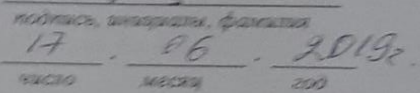 подпись, инициалы, фамилия
17 . 06 . 2019г.
число месяц год